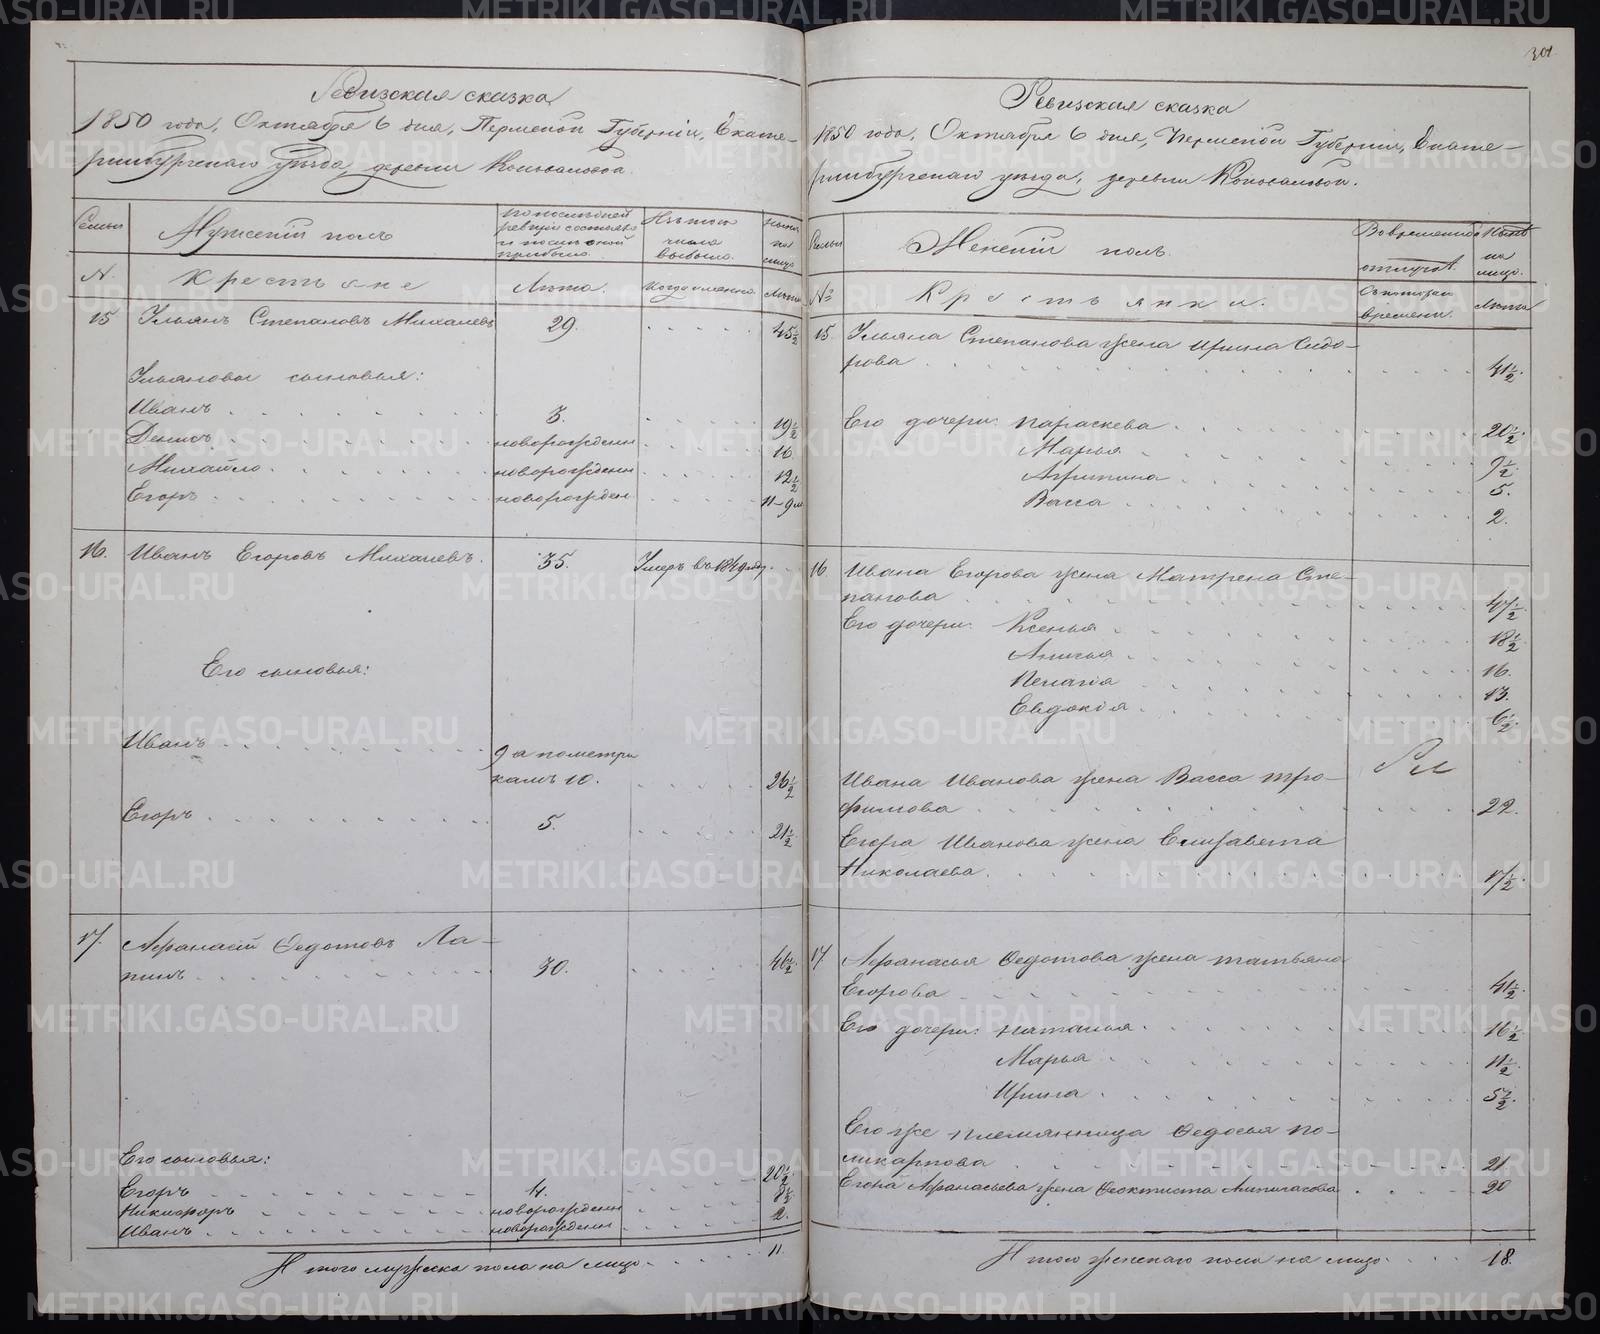 301
Ревизская сказка
1850 года, Октября 6 дня, Пермской Губерніи, Екате-
ринбургскаго уѣзда, деревни Коновалова.
Семьи
Мужескій полъ
По послѣдней ревизіи состояло и послѣ оной прибыло.
Изъ того числа выбыло.
Нынѣ на лицо
№
Крестьяне
Лѣта.
Когда именно.
Лѣта
15 Ульянъ Степановъ Михалевъ 29. 45½
Ульяновы сыновья:
Иванъ 3. 19½
Денисъ новорожденн 16
Михайло новорожденн 12½
Егоръ новорожден 11-9 м
16. Иванъ Егоровъ Михалевъ. 35. Умеръ въ 1849 году
Его сыновья:
Иванъ 9 а по метри
камъ 10. 26½
Егоръ 5. 21½
17. Афанасій Ѳедотовъ Ла-
пинъ 30. 46½
Его сыновья:
Егоръ 4. 20½
Никифоръ новорожденн 8½
Иванъ новорожденн 2.
Итого мужеска пола на лицо 11.
Ревизская сказка
1850 года, Октября 6 дня, Пермской Губерніи, Екате-
ринбургскаго уѣзда, деревни Коноваловой.
Семьи
Женскій полъ.
Во временной отлучкѣ.
Нынѣ на лицо.
№
Крестьянки.
Съ котораго времени.
Лѣта
15. Ульяна Степанова жена Ирина Сидо-
рова 41½.
Его дочери: Параскева 20½.
Марья 9½.
Агрипина 5.
Васса 2.
16 Ивана Егорова жена Матрена Сте-
панова 47½
Его дочери: Ксенья 18½
Анисья 16.
Пелагія 13.
Евдокія 6½.
Ивана Иванова жена Васса Тро-
фимова 22.
Егора Иванова жена Елизавета
Николаева. 17½.
17. Афанасья Ѳедотова жена Татьяна
Егорова 41½.
Его дочери: Наталья 16½
Марья 11½.
Ирина 5½.
Его же племянница Ѳедосья По-
ликарпова 21
Егора Афанасьева жена Ѳеоктиста 20
Итого женскаго пола на лицо 18.
METRIKI.GASO-URAL.RU